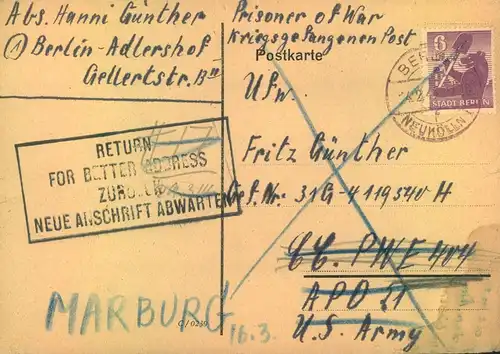 Abs. Hanni Günther
① Berlin-Adlershof
Gellertstr.
Prisoner of War
Kriegsgefangenen Post
Postkarte
6
STADT BERLIN
NEUKÖLLN
Ufw.
Fritz Günther
Gef. Nr. 31G-4119340 H
CC. PWE 404
APO 21
U.S. Army
RETURN
FOR BETTER ADDRESS
ZURÜCK
NEUE ANSCHRIFT ABWARTEN
MARBURG
16.3.